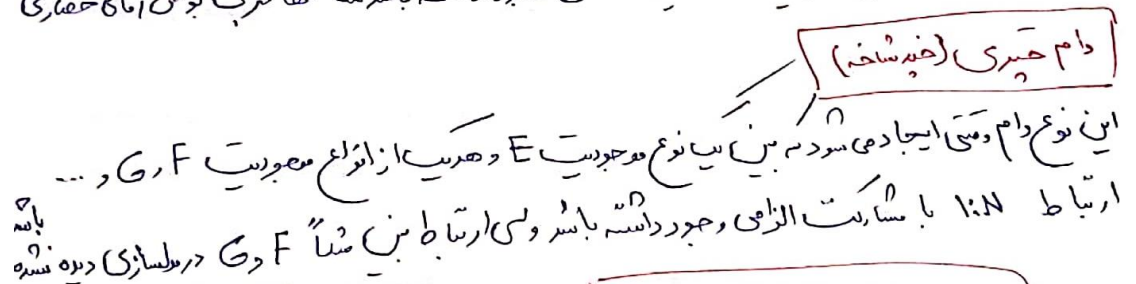 آقای حصاری
دام چتری (چند شاخه)
این نوع دام وقتی ایجاد می شود که بین یک نوع موجودیت E و هریک از انواع موجودیت F ، G و ...
ارتباط 1:N با مشارکت الزامی وجود داشته باشد ولی ارتباط بین مثلاً F و G در مدلسازی دیده نشده باشد